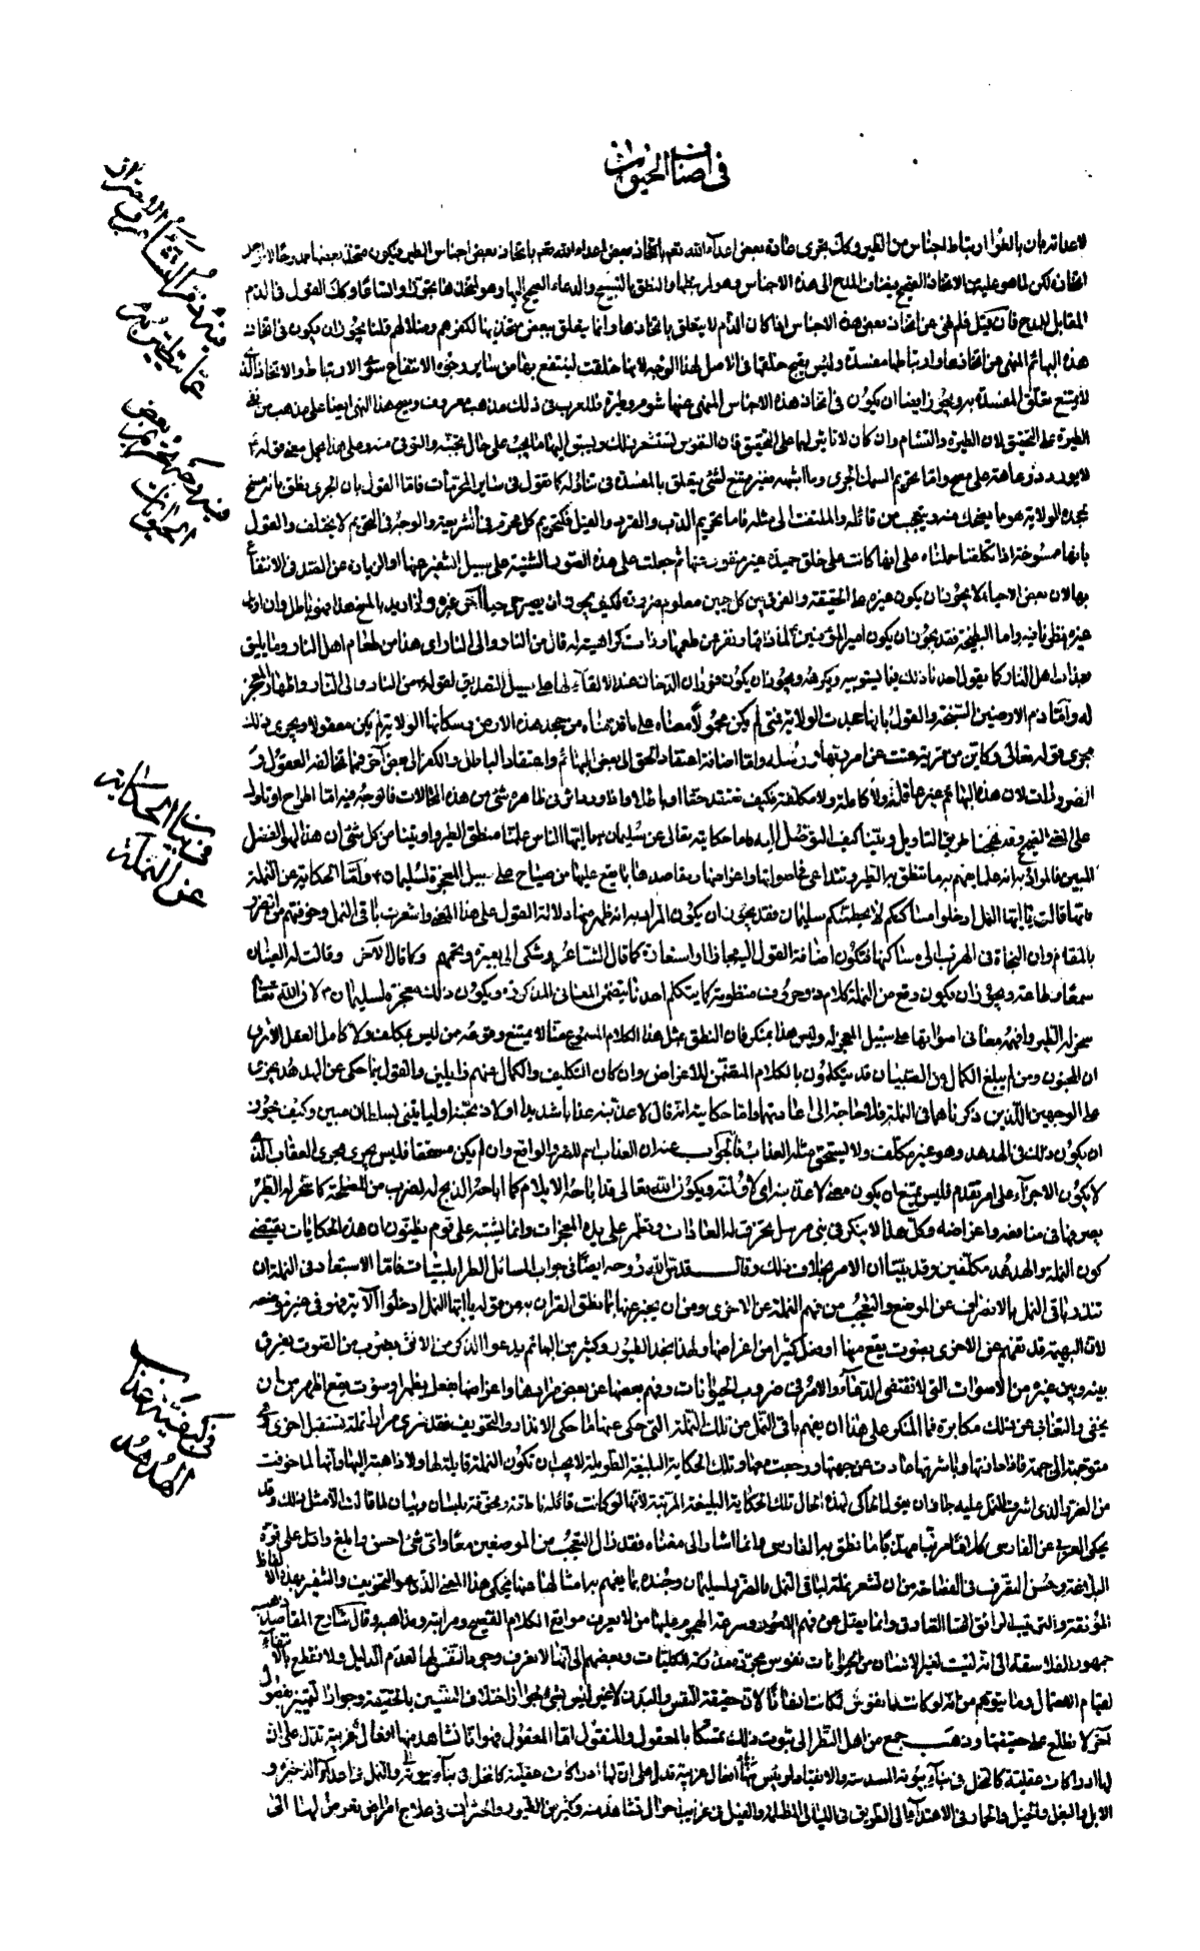 في اصناف الحيوان
لاعدائه بان يالفوا ارتباط اجناس من الطير وكك تجرى عادة بعض اعداء الله تعم باتخاذ بعض اجناس الطير فيكون متخذ بعضها ممدوحا لا من اجل
اتخاذه لكن لما هو عليه من الاتخاذ الصحيح فيضاف المدح الى هذه الاجناس وهو لمرتبطها والنطق بالتسبيح والدعاء الصحيح اليها وهو لمتخذها تجوزا واتساعا وكك القول في الذم
المقابل للمدح فان قيل فلم نهى عن اتخاذ بعض هذه الاجناس اذا كان الذم لا يتعلق باتخاذها وانما يتعلق ببعض متخذيها لكفرهم وضلالهم قلنا يجوز ان يكون في اتخاذ
هذه البهائم المنهى عن اتخاذها وارتباطها مفسدة وليس يقبح خلقها في الاصل لهذا الوجه لانها خلقت لينتفع بها من ساير وجوه الانتفاع سوى الارتباط والاتخاذ الذى
لا يمتنع تعلق المفسدة به ويجوز ايضا ان يكون في اتخاذ هذه الاجناس المنهى عنها شوم وطيرة فللعرب في ذلك مذهب معروف ويصح هذا النهى ايضا على مذهب من نفى
الطيرة على التحقيق لان الطيرة والتشام وان كان لا تاثير لها على التحقيق فان النفوس تستشعر ذلك ويسبق اليها ما يجب على حال تجنبه والتوقى منه وعلى هذا يحمل معنى قوله ع
لا يورد ذو عاهة على مصح واما تحريم السمك الجرى وما اشبهه فغير ممتنع لشئ يتعلق بالمفسدة في تناوله كما نقول في سائر المحرمات فاما القول بان الجرى نطق بانه مسخ
بجحده الولاية فهو مما يضحك منه ويتعجب من قائله والملتفت الى مثله فاما تحريم الدب والقرد والفيل فكتحريم كل محرم في الشريعة والوجه في التحريم لا يختلف والقول
بانها مسوخة اذا تكلفنا حملناه على انها كانت على خلق حميدة غير منفور عنها ثم جعلت على هذه الصور الشنية على سبيل التنفير عنها او الزيادة عن الصد في الانتفاع
بها لان بعض الاحياء لا يجوز ان يكون غيره على الحقيقة والفرق بين كل حيين معلوم ضرورة فكيف يجوز ان يصير حى حيا آخر غيره واذا اريد بالمسخ هذا فهو باطل وان اريد
غيره نظرنا فيه واما البطيخة فقد يجوز ان يكون امير المؤمنين ع لما ذاقها ونفر من طعمها وزادت كراهيته له قال من النار والى النار اى هذا من طعام اهل النار وما يليق
بعذاب اهل النار كما يقول احدنا ذلك فيما يستوبيه ويكرهه ويجوز ان يكون فوران الدخان عند الالقاء لها على سبيل التصديق لقوله ع من النار والى النار واظهار المعجز
له واما ذم الارضين السبخة والقول بانها جحدت الولاية فمتى لم يكن محمولا معناه على ما قدمناه من جحد هذه الارض وسكانها الولاية لم يكن معقولا ويجرى ذلك
مجرى قوله تعالى وكاين من قرية عتت عن امر ربها ورسله واما اضافة اعتقاد الحق الى بعض البهائم واعتقاد الباطل والكفر الى بعض آخر فمما تخالفه العقول و
الضرورات لان هذه البهائم غير عاقلة ولا كاملة ولا مكلفة فكيف تعتقد حقا او باطلا واذا ورد اثر في ظاهره شئ من هذه المحالات فالوجه فيه اما اطراح او تاويل
على المعنى الصحيح وقد نهجنا طريق التاويل وبينا كيف التوصل اليه فاما حكايته تعالى عن سليمان ع يا ايها الناس علمنا منطق الطير واوتينا من كل شئ ان هذا لهو الفضل
المبين فالمراد به انه علم ما يفهم به ما تنطق به الطير وتتداعى في اصواتها واغراضها ومقاصدها بما يقع عليها من صياح على سبيل المعجزة لسليمان ع واما الحكاية عن النملة
بانها قالت يا ايها النمل ادخلوا مساكنكم لا يحطمنكم سليمان فقد يجوز ان يكون المراد به انه ظهر منها دلالة القول على هذا المعنى واشعرت باقى النمل وخوفتهم من الضرر
بالمقام وان النجاة في الهرب الى مساكنها فتكون اضافة القول اليه مجازا او استعارة كما قال الشاعر وشكى الى بعبرة وتحمحم وكما قال الآخر وقالت له العينان
سمعا وطاعة ويجوز ان يكون وقع من النملة كلام ذو حروف منظومة كما يتكلم احدنا يتضمن المعانى المذكورة ويكون ذلك معجزة لسليمان ع لان الله تعالى
سخر له الطير وافهمه معانى اصواتها على سبيل المعجز له وليس هذا بمنكر فان النطق بمثل هذا الكلام المسموع منا لا يمتنع وقوعه ممن ليس بمكلف ولا كامل العقل الا ترى
ان المجنون ومن لم يبلغ الكمال من الصبيان قد يتكلمون بالكلام المتضمن للاغراض وان كان التكليف والكمال عنهم زايلين والقول فيما حكى عن الهدهد يجرى
على الوجهين اللذين ذكرناهما في النملة فلا حاجة الى اعادتهما واما حكايته انه قال لاعذبنه عذابا شديدا او لاذبحنه او لياتينى بسلطان مبين وكيف يجوز
ان يكون ذلك في الهدهد وهو غير مكلف ولا يستحق مثله العذاب فالجواب عنه ان العذاب اسم للضرر الواقع وان لم يكن مستحقا فليس يجرى مجرى العقاب الذى
لا يكون الا جزاء على امر تقدم فليس يمتنع ان يكون معنى لاعذبنه اى لاولمنه ويكون الله تعالى قد اباحه الايلام كما اباحه الذبح له لضرب من المصلحة كما سخر له الطير
يصرفها في منافعه واغراضه وكل هذا لا ينكر في نبى مرسل تخرق له العادات وتظهر على يده المعجزات وانما يشتبه على قوم يظنون ان هذه الحكايات تقتضى
كون النملة والهدهد مكلفين وقد بينا ان الامر بخلاف ذلك وقال قدس الله روحه ايضا في جواب المسائل الطرابلسيات فاما الاستبعاد في النملة ان
تنذر باقى النمل بالانصراف عن الموضع والتعجب من فهم النملة عن الاخرى ومن ان يخبر عنها بما نطق القرآن به من قوله يا ايها النمل ادخلوا الآية فهو في غير موضعه
لان البهيمة قد تفهم عن الاخرى بصوت يقع منها او فعل كثيرا من اغراضها ولهذا نجد الطيور وكثيرا من البهائم يدعوا الذكر من الانثى بضرب من الصوت يفرق
بينه وبين غيره من الاصوات التى لا تقتضى الدعاء والامر في ضروب الحيوانات وفهم بعضها عن بعض مرادها واغراضها بفعل يظهر او صوت يقع اظهر من ان
يخفى والتغابى عن ذلك مكابرة فما المنكر على هذا ان يفهم باقى النمل من تلك النملة التى حكى عنها ما حكى الانذار والتخويف فقد نرى مرارا نملة تستقبل اخرى وهى
متوجهة الى جهة فاذا حاذتها وباشرتها عادت عن جهتها ورجعت معها وتلك الحكاية البليغة الطويلة لا يجب ان تكون النملة قايلة لها ولا ذاهبة اليها وانها لما خوفت
من الضرر الذى اشرف النمل عليه جاز ان يقول الحاكى لهذه الحال تلك الحكاية البليغة المرتبة لانها لو كانت قائلة ناطقة ومخوفة بلسان وبيان لما قالت الا مثل ذلك وقد
يحكى العربى عن الفارسى كلاما مرتبا مهذبا ما نطق به الفارسى وانما اشار الى معناه فقد زال التعجب من الموضعين معا واى شئ احسن وابلغ وادل على قوة
البلاغة وحسن التصرف في الفصاحة من ان تشعر نملة لباقى النمل بالضرر لسليمان وجنده بما يفهم به امثالها عنها فيحكى هذا المعنى الذى هو التخويف والتنفير بهذه الالفاظ
المونقة والترتيب الرائق الصادق وانما يعقل عن فهم الامور وسرعة الهجوم عليها من لا يعرف مواقع الكلام الفصيح ومراتبه ومذاهبه وقال شارح المقاصد ذهب
جمهور الفلاسفة الى انه ليست لغير الانسان من الحيوانات نفوس مجردة مدركة للكليات وبعضهم الى انا لا نعرف وجود النفس لها لعدم الدليل ولا نقطع بالانتفاء
لقيام الاحتمال وما يتوهم من انه لو كانت لها نفوس لكانت انسانا لان حقيقة النفس والبدن لا غير ليس بشئ لجواز اختلاف النفسين بالحقيقة وجواز التميز بفصول
آخر لا نطلع على حقيقتها وذهب جمع من اهل النظر الى ثبوت ذلك تمسكا بالمعقول والمنقول اما المعقول فهو انا نشاهد منها افعالا غريبة تدل على ان
لها ادراكات عقلية كالنحل في بناء بيوته المسدسة والانقياد لرئيس والنمل في اعداد الذخيرة و
الابل والبغل والخيل والحمار في الاهتداء الى الطريق في الليالى المظلمة والفيل في غرايب احوال تشاهد منه وكثير من الطيور والحشرات في علاج امراض تعرض لها الى
فيه ذكر التشأم
عما يتطير به
فيه وجه تحريم بعض
الحيوانات
في بيان الحكاية
عن النملة
في كيفية عذاب
الهدهد